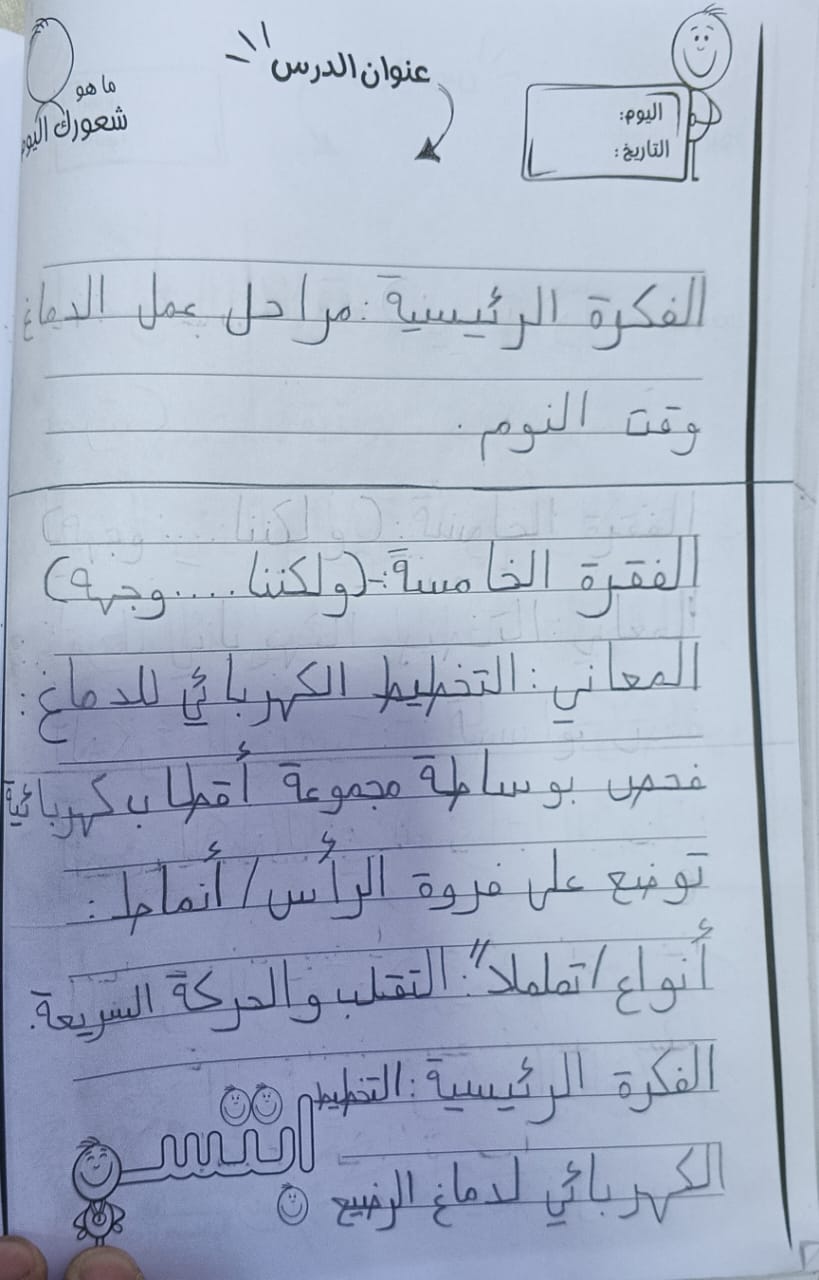 عنوان الدرس
اليوم:
التاريخ:
ما هو
شعورك اليوم
الفكرة الرئيسية : مراحل عمل الدماغ
وقت النوم .
الفقرة الخامسة :- (ولكننا .... وجهه)
المعاني : التخطيط الكهربائي للدماغ :
فحص بوساطة مجموعة أقطاب كهربائية
توضع على فروة الرأس / أنماط :
أنواع / تململاً : التقلب والحركة السريعة .
الفكرة الرئيسية : التخطيط
الكهربائي لدماغ الرضيع
ابتسـ